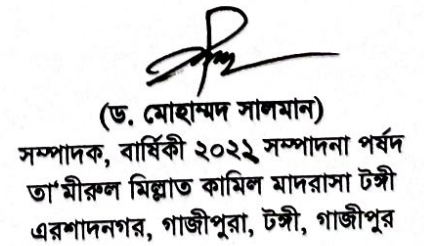 (ড. মোহাম্মদ সালমান)
সম্পাদক, বার্ষিকী ২০২২ সম্পাদনা পর্ষদ
তা'মীরুল মিল্লাত কামিল মাদরাসা টঙ্গী
এরশাদনগর, গাজীপুরা, টঙ্গী, গাজীপুর